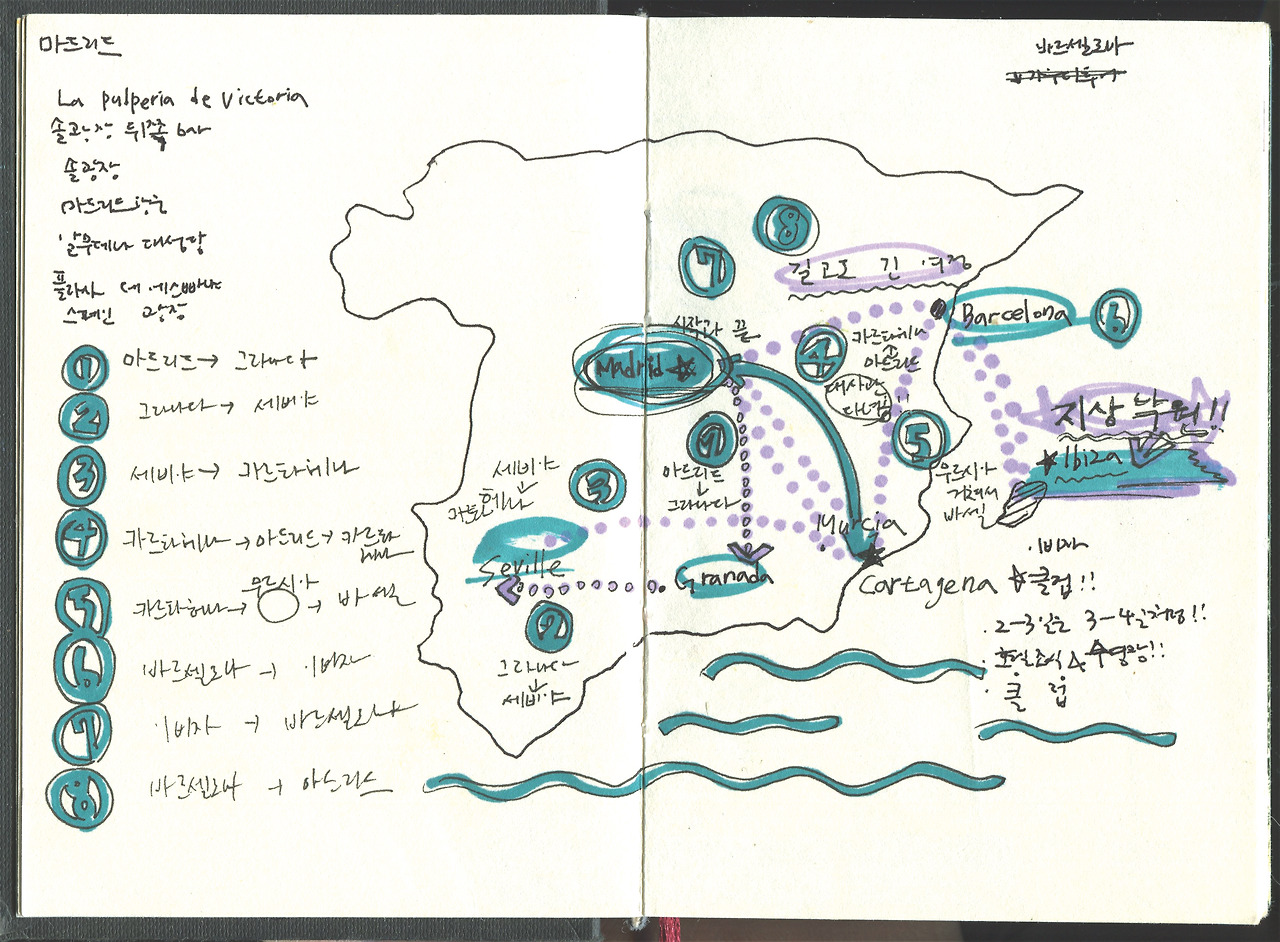 마드리드
La pulperia de Victoria
솔광장 뒤쪽 bar
솔광장
마드리드왕궁
알무데나 대성당
플라자 데 에스빠냐
스페인 광장
① 마드리드→ 그라나다
② 그라나다 → 세비야
③ 세비야 → 카르타헤나
④ 카르타헤나 →마드리드→ 카르타헤나
⑤ 카르타헤나→ 무르시아 → 바셀
⑥ 바르셀로나 → 이비자
⑦ 이비자 → 바르셀로나
⑧ 바르셀로나 → 마드리드
바르셀로나
⑧
⑦
길고도 긴 여정
시작과 끝
Madrid
④
카르타헤나
마드리드
대사관
다녀옴!!
Barcelona
⑥
지상 낙원!!
Ibiza
⑤
무르시아
거쳐서
바셀
①
마드리드
그라나다
세비야
③
카르타헤나
Seville
Granada
Murcia
Cartagena
②
그라나다
세비야
이비자
클럽!!
2-3일을 3-4일처럼!!
호텔조식 수영장!!
클럽